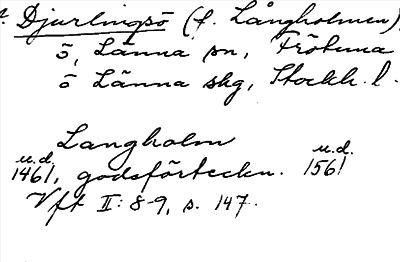 Djurlingsö (f. Långholmen),
ö, Länna sn, Frötuna
o Länna skg, Stockh. l.
Langholm
u.d. u.d.
1461, godsförteckn. 1561
Vft II: 8-9, s. 147.